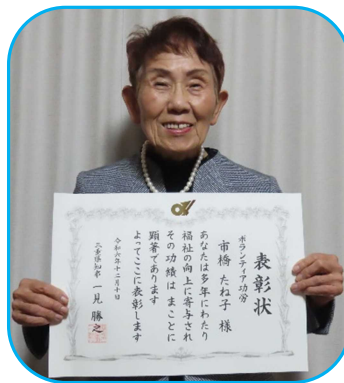 表彰状
ボランティア功労
市橋 たね子 様
あなたは多年にわたり
福祉の向上に寄与され
その功績はまことに
顕著であります
よってここに表彰します
令和六年十二月十日
三重県知事 一見 勝之